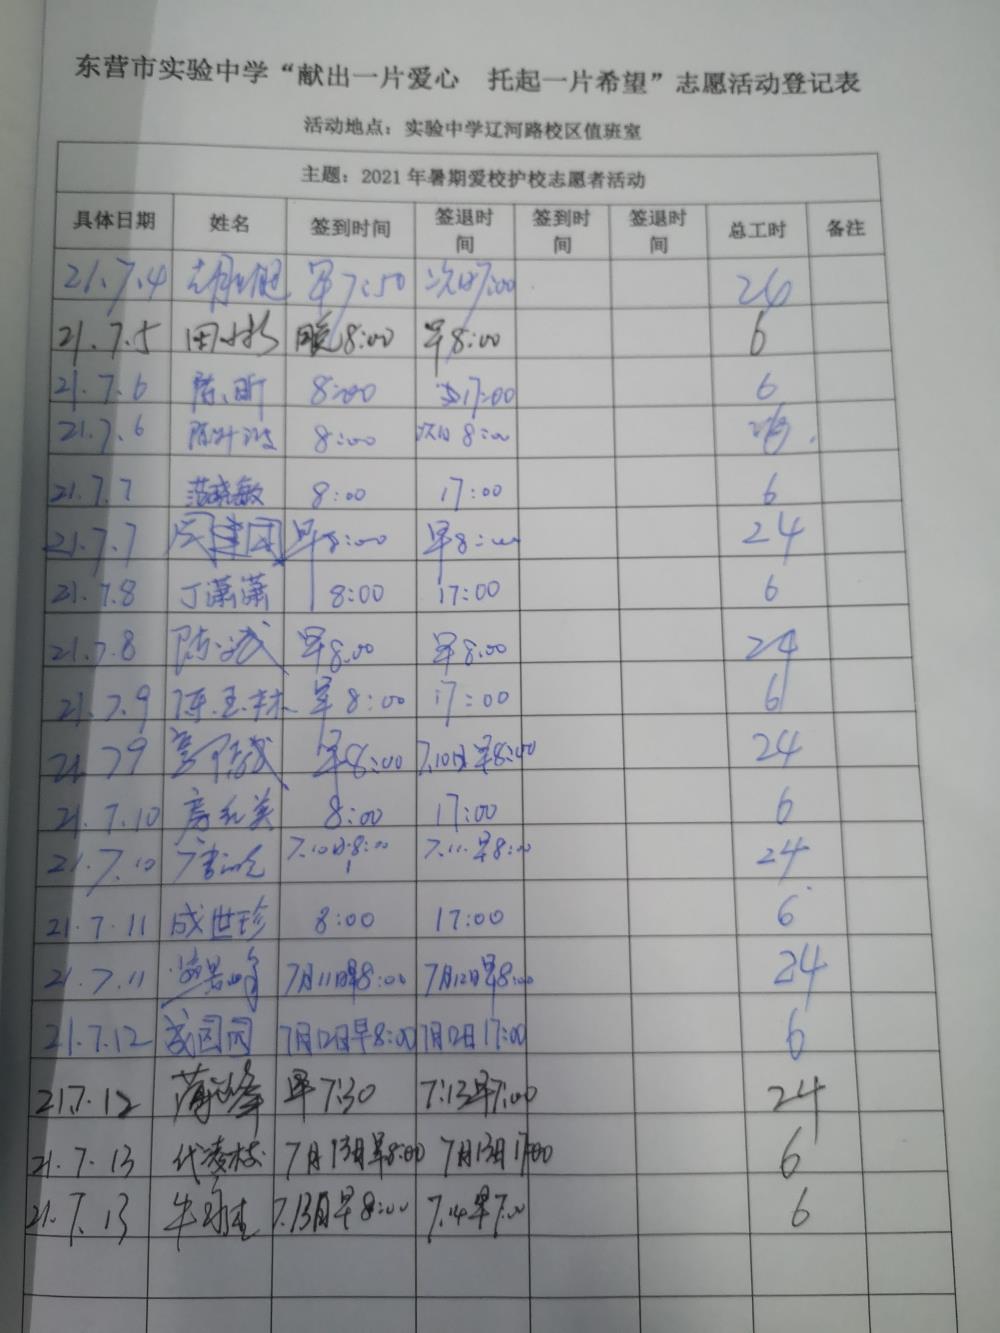 东营市实验中学“献出一片爱心 托起一片希望”志愿活动登记表
活动地点：实验中学辽河路校区值班室
主题：2021年暑期爱校护校志愿者活动
具体日期 姓名 签到时间 签退时间 签到时间 签退时间 总工时 备注
21.7.4 早7:50 次日7:00 24
21.7.5 8:00 早8:00 6
21.7.6 陈昕 8:00 17:00 6
21.7.6 8:00 次日8:00
21.7.7 范晓敏 8:00 17:00 6
21.7.7 早8:00 早8:00 24
21.7.8 丁潇潇 8:00 17:00 6
21.7.8 早8:00 早8:00 24
21.7.9 陈玉林 早8:00 17:00 6
21.7.9 早8:00 7.10日早8:00 24
21.7.10 8:00 17:00 6
21.7.10 7.10日8:00 7.11早8:00 24
21.7.11 成世珍 8:00 17:00 6
21.7.11 7月11日早8:00 7月12日早8:00 24
21.7.12 7月12日早8:00 7月12日17:00 6
21.7.12 早7:30 7:13早7:00 24
21.7.13 代凌枝 7月13日早8:00 7月13日17:00 6
21.7.13 7.13日早8:00 7.14早7:00 6